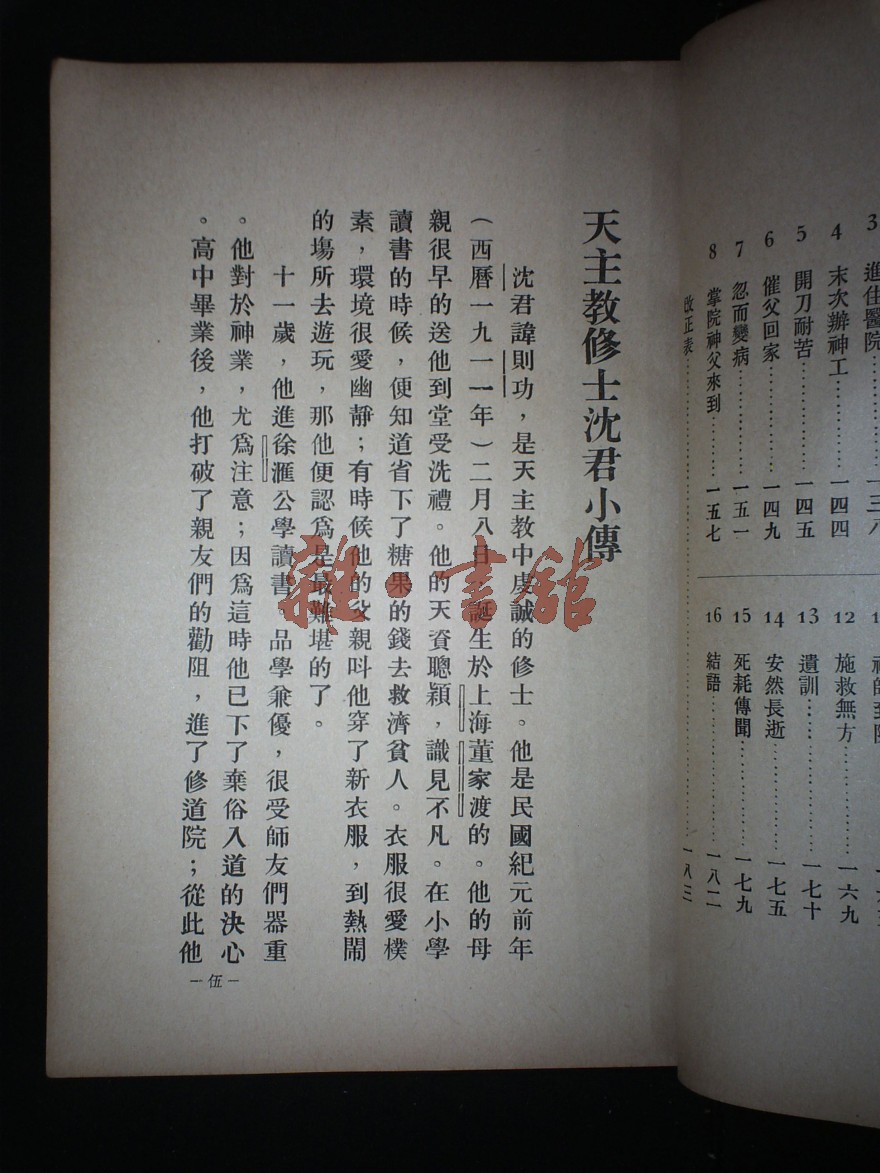 3 進住醫院……一三八
4 末次辦神工……一四四
5 開刀耐苦……一四五
6 催父回家……一四九
7 忽而變病……一五一
8 掌院神父來到……一五七
12 施救無方……一六九
13 遺訓……一七十
14 安然長逝……一七五
15 死耗傳聞……一七九
16 結語……一八二
改正表……一八三
天主教修士沈君小傳
沈君諱則功,是天主教中虔誠的修士。他是民國紀元前年
(西曆一九一一年)二月八日,誕生於上海董家渡的。他的母
親很早的送他到堂受洗禮。他的天資聰穎,識見不凡。在小學
讀書的時候,便知道省下了糖果的錢去救濟貧人。衣服很愛樸
素,環境很愛幽靜;有時候他的父親叫他穿了新衣服,到熱鬧
的塲所去遊玩,那他便認爲是最難堪的了。
十一歲,他進徐滙公學讀書。品學兼優,很受師友們器重
。他對於神業,尤爲注意;因爲這時他已下了棄俗入道的決心
。高中畢業後,他打破了親友們的勸阻,進了修道院;從此他
—伍—
雜·書館